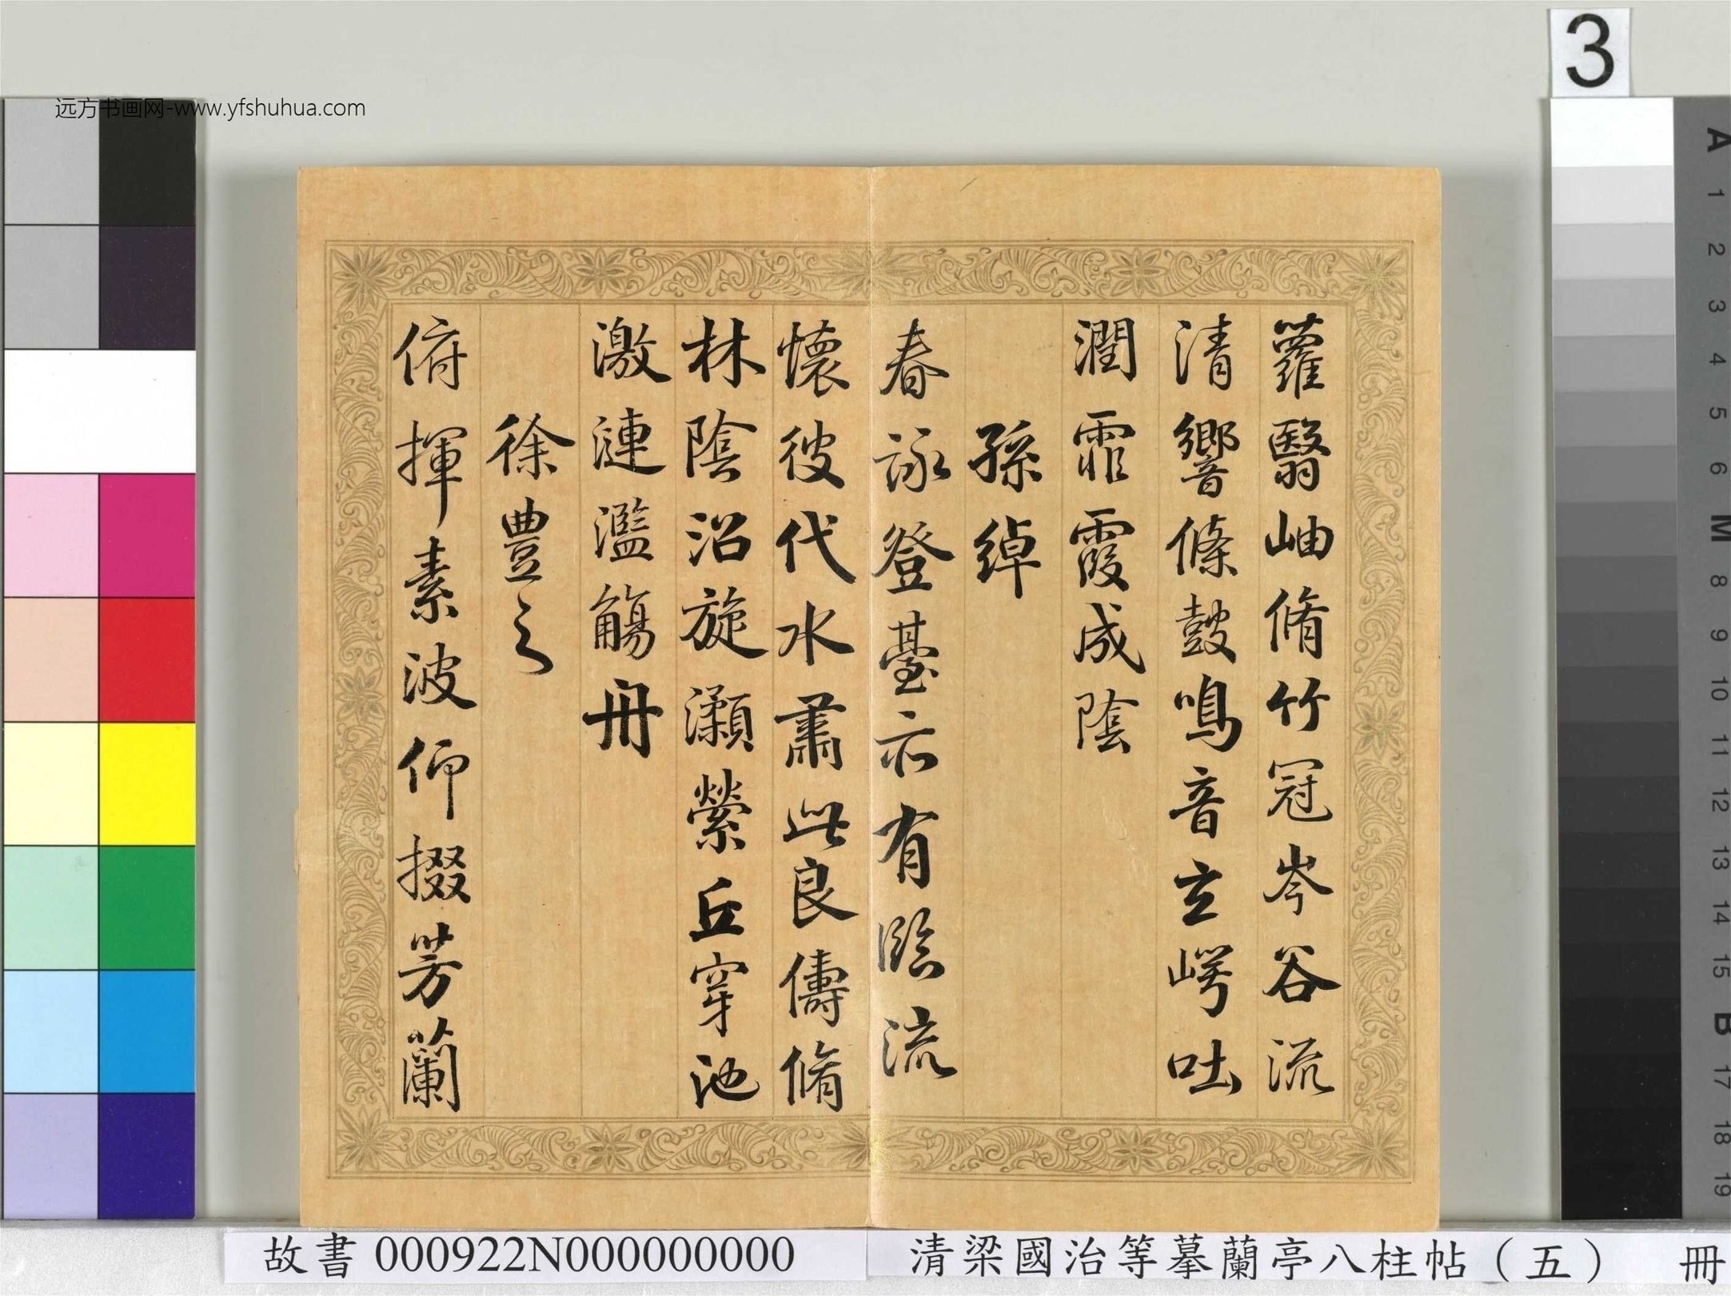 远方书画网-www.yfshuhua.com
3
蘿翳岫脩竹冠岑谷流
清響條鼓鳴音玄崿吐
潤霏霧成陰
孫綽
春詠登臺亦有臨流
懷彼伐木肅此良儔脩
林陰沼旋瀨縈丘穿池
激漣濫觴舟
徐豊之
俯揮素波仰掇芳蘭
A
1
2
3
4
5
6
M
8
9
10
11
12
13
14
15
B
17
18
19
故書 000922N000000000
清梁國治等摹蘭亭八柱帖（五） 冊